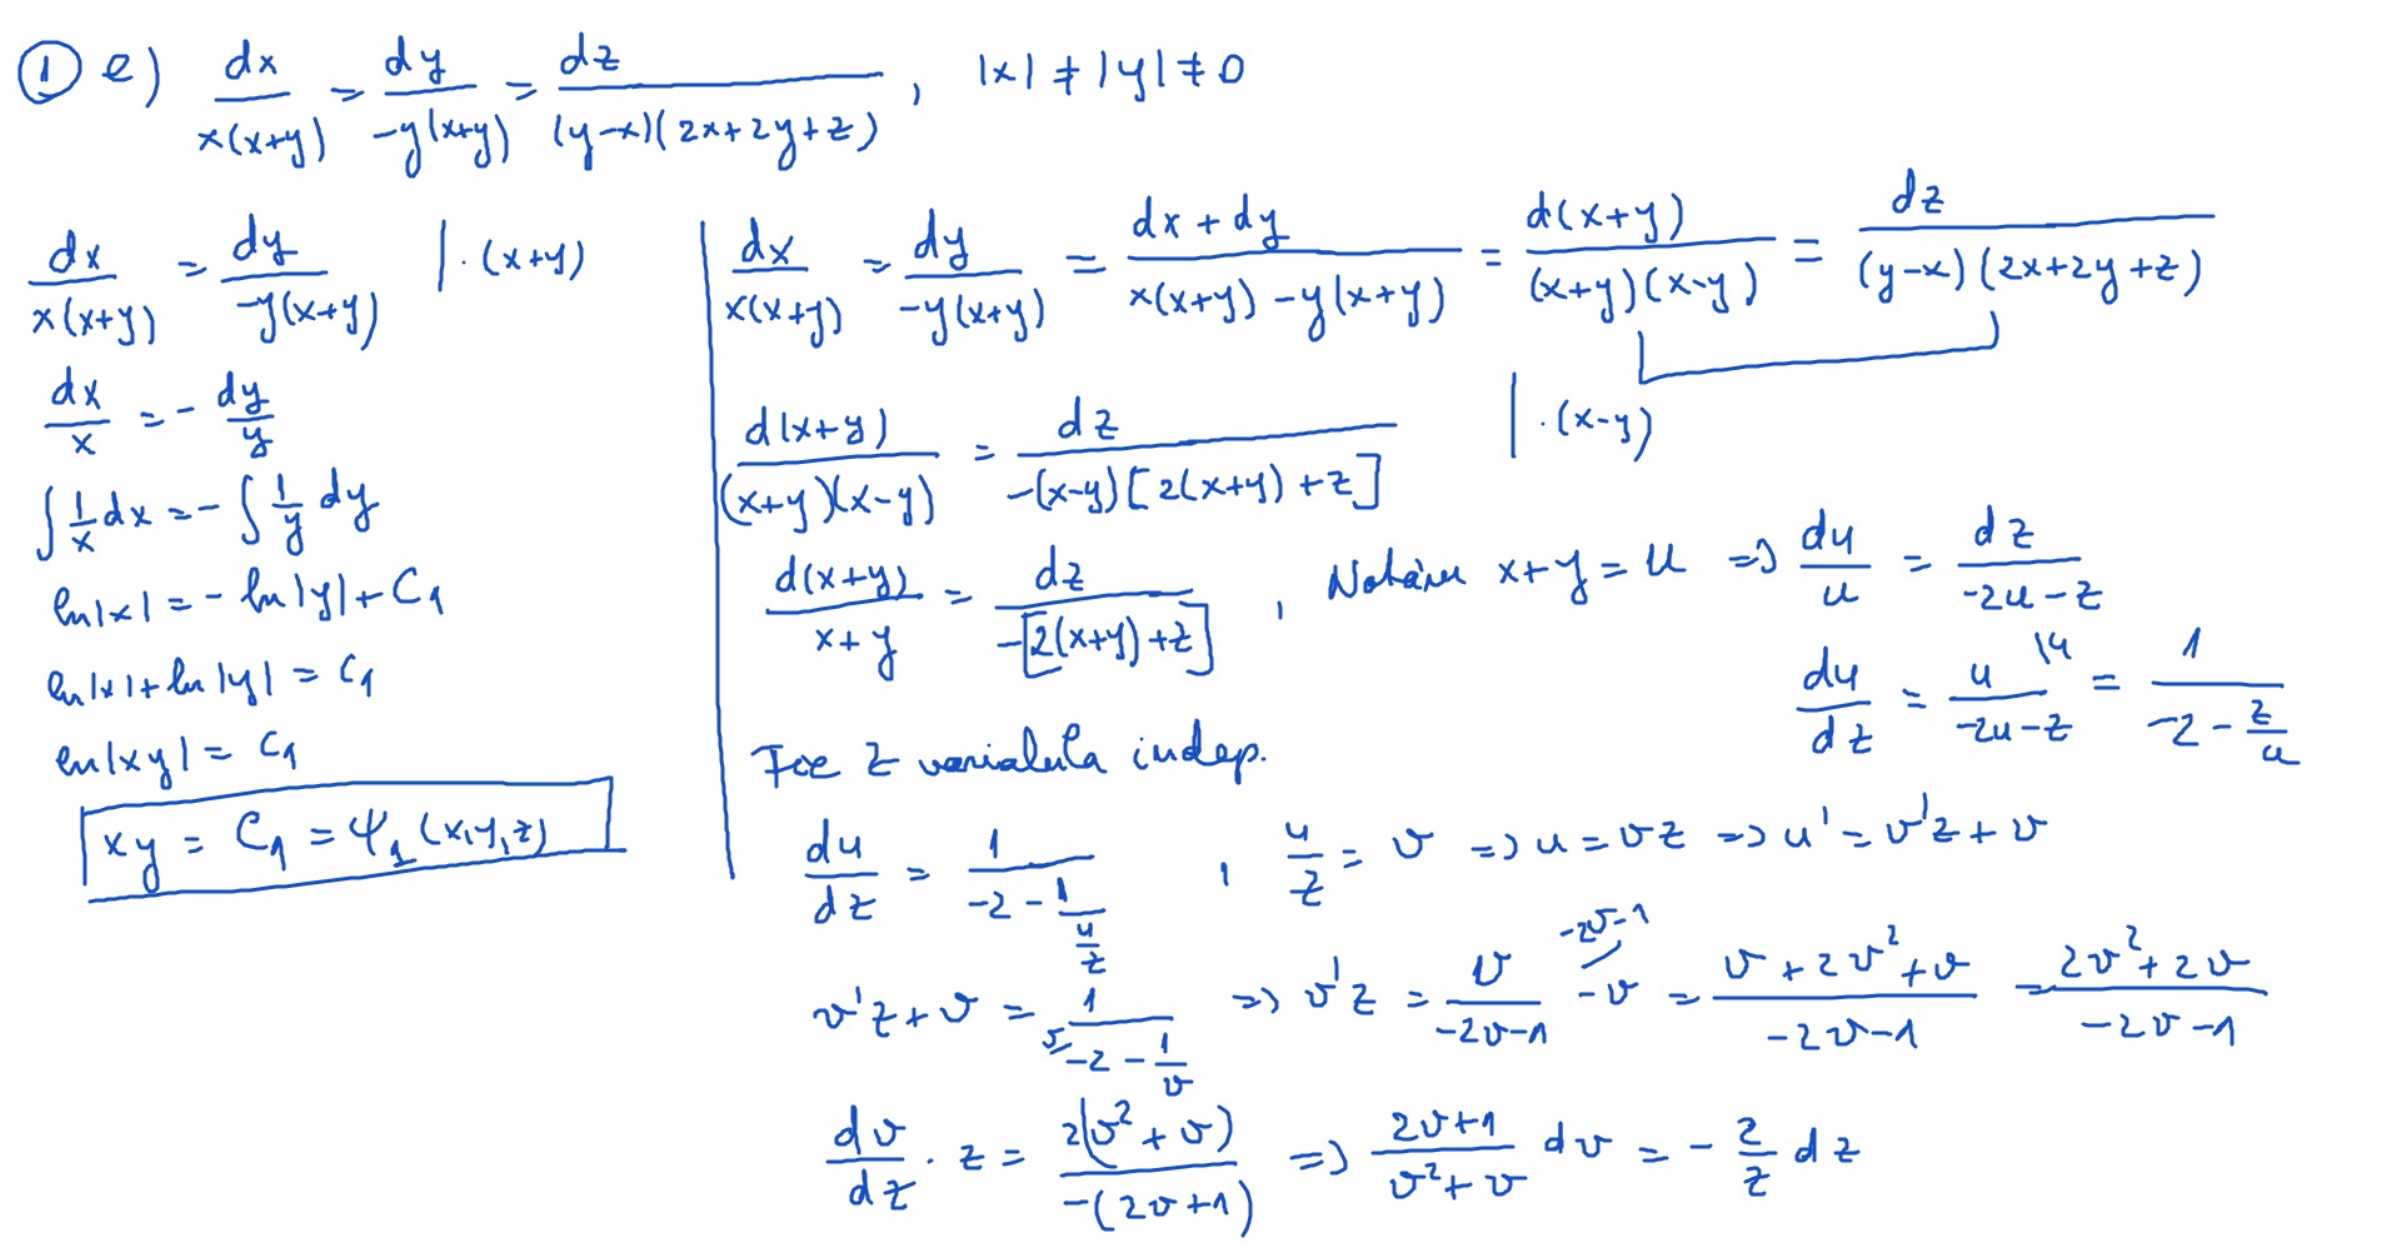 ① e) dx/(x(x+y)) = dy/(-y(x+y)) = dz/((y-x)(2x+2y+z)) , |x| ≠ |y| ≠ 0
dx/(x(x+y)) = dy/(-y(x+y)) | · (x+y)
dx/x = - dy/y
∫ 1/x dx = - ∫ 1/y dy
ln|x| = - ln|y| + C₁
ln|x| + ln|y| = C₁
ln|xy| = C₁
xy = C₁ = Ψ₁(x,y,z)
dx/(x(x+y)) = dy/(-y(x+y)) = (dx + dy)/(x(x+y) - y(x+y)) = d(x+y)/((x+y)(x-y)) = dz/((y-x)(2x+2y+z))
d(x+y)/((x+y)(x-y)) = dz/(-(x-y)[2(x+y)+z]) | · (x-y)
d(x+y)/(x+y) = dz/(-[2(x+y)+z]) , Notăm x+y = u => du/u = dz/(-2u-z)
du/dz = u/(-2u-z) |u = 1/(-2 - z/u)
Fie z variabila indep.
du/dz = 1/(-2 - 1/(u/z)) , u/z = v => u = vz => u' = v'z + v
v'z + v = v) 1/(-2 - 1/v) => v'z = v/(-2v-1) -2v-1) - v = (v + 2v² + v)/(-2v-1) = (2v² + 2v)/(-2v-1)
dv/dz · z = 2(v² + v)/(-(2v+1)) => (2v+1)/(v²+v) dv = - 2/z dz